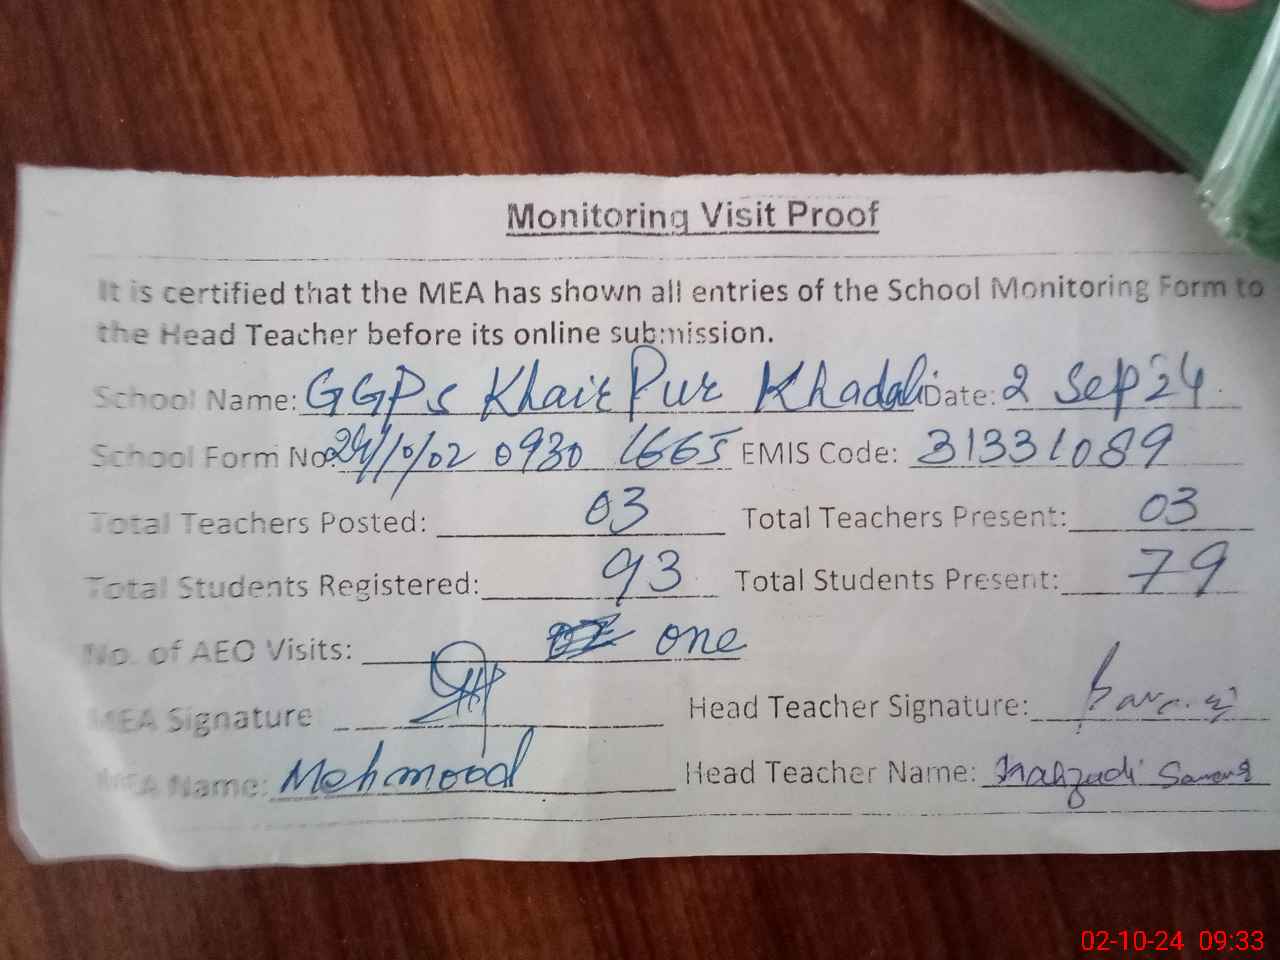 Monitoring Visit Proof
It is certified that the MEA has shown all entries of the School Monitoring Form to
the Head Teacher before its online submission.
School Name: GGPS Khair Pur Khadali Date: 2 Sep'24
School Form No: 24/10/02 0930 1665 EMIS Code: 31331089
Total Teachers Posted: 03 Total Teachers Present: 03
Total Students Registered: 93 Total Students Present: 79
No. of AEO Visits: one
MEA Signature Head Teacher Signature:
MEA Name: Mehmood Head Teacher Name: Shahzadi
02-10-24 09:33